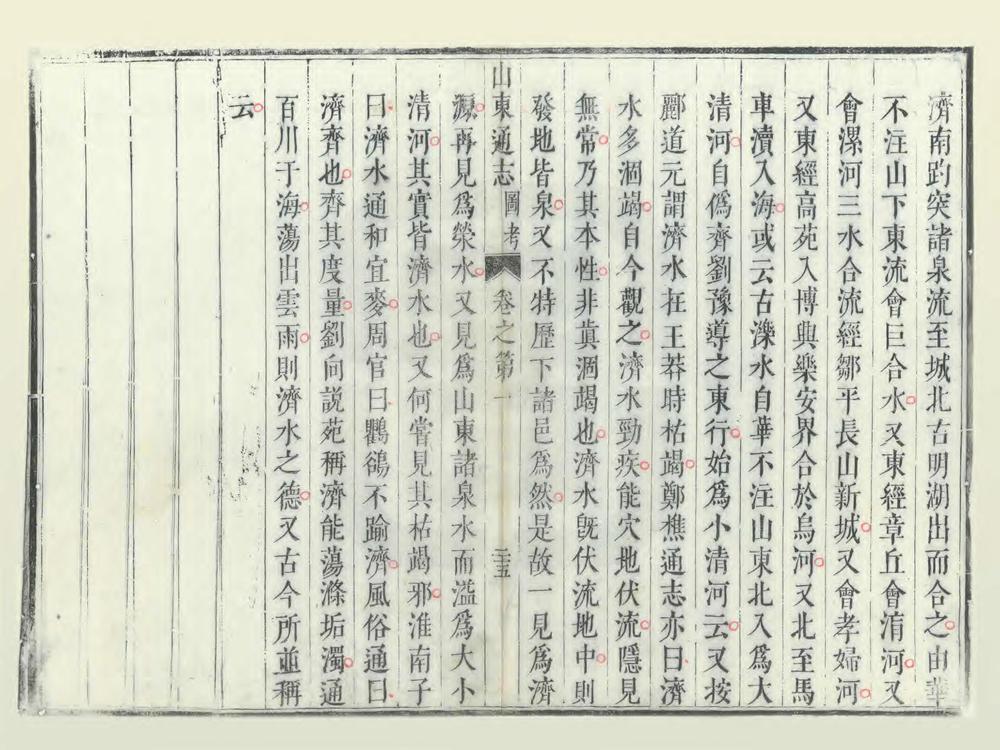 濟南趵突諸泉流至城北古明湖出而合之由華
不注山下東流會巨合水又東經章丘會淯河又
會漯河三水合流經鄒平長山新城又會孝婦河
又東經高苑入博興樂安界合於烏河又北至馬
車瀆入海或云古濼水自華不注山東北入為大
清河自偽齊劉豫導之東行始為小清河云又按
酈道元謂濟水在王莽時枯竭鄭樵通志亦曰濟
水多涸竭自今觀之濟水勁疾能穴地伏流隱見
無常乃其本性非真涸竭也濟水旣伏流地中則
發地皆泉又不特歷下諸邑為然是故一見為濟
山東通志 圖考 卷之第一 三五
源再見為滎水又見為山東諸泉水而溢為大小
清河其實皆濟水也又何嘗見其枯竭邪淮南子
曰濟水通和宜麥周官曰鸜鵒不踰濟風俗通曰
濟齊也齊其度量劉向說苑稱濟能蕩滌垢濁通
百川于海蕩出雲雨則濟水之德又古今所並稱
云